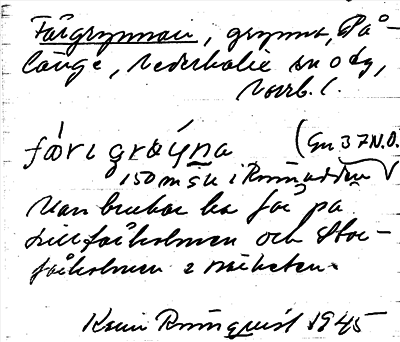 Fårgrynnan, grynna, På-
länge, Nederkalix sn o dg,
Norrb. l.
fårigråýna (Gn 37 N.O.
150 m S u i Run
Man brukar ha får på
Lillfårholmen och Stor-
fårholmen i närheten.
Karin Rönnqvist 1945